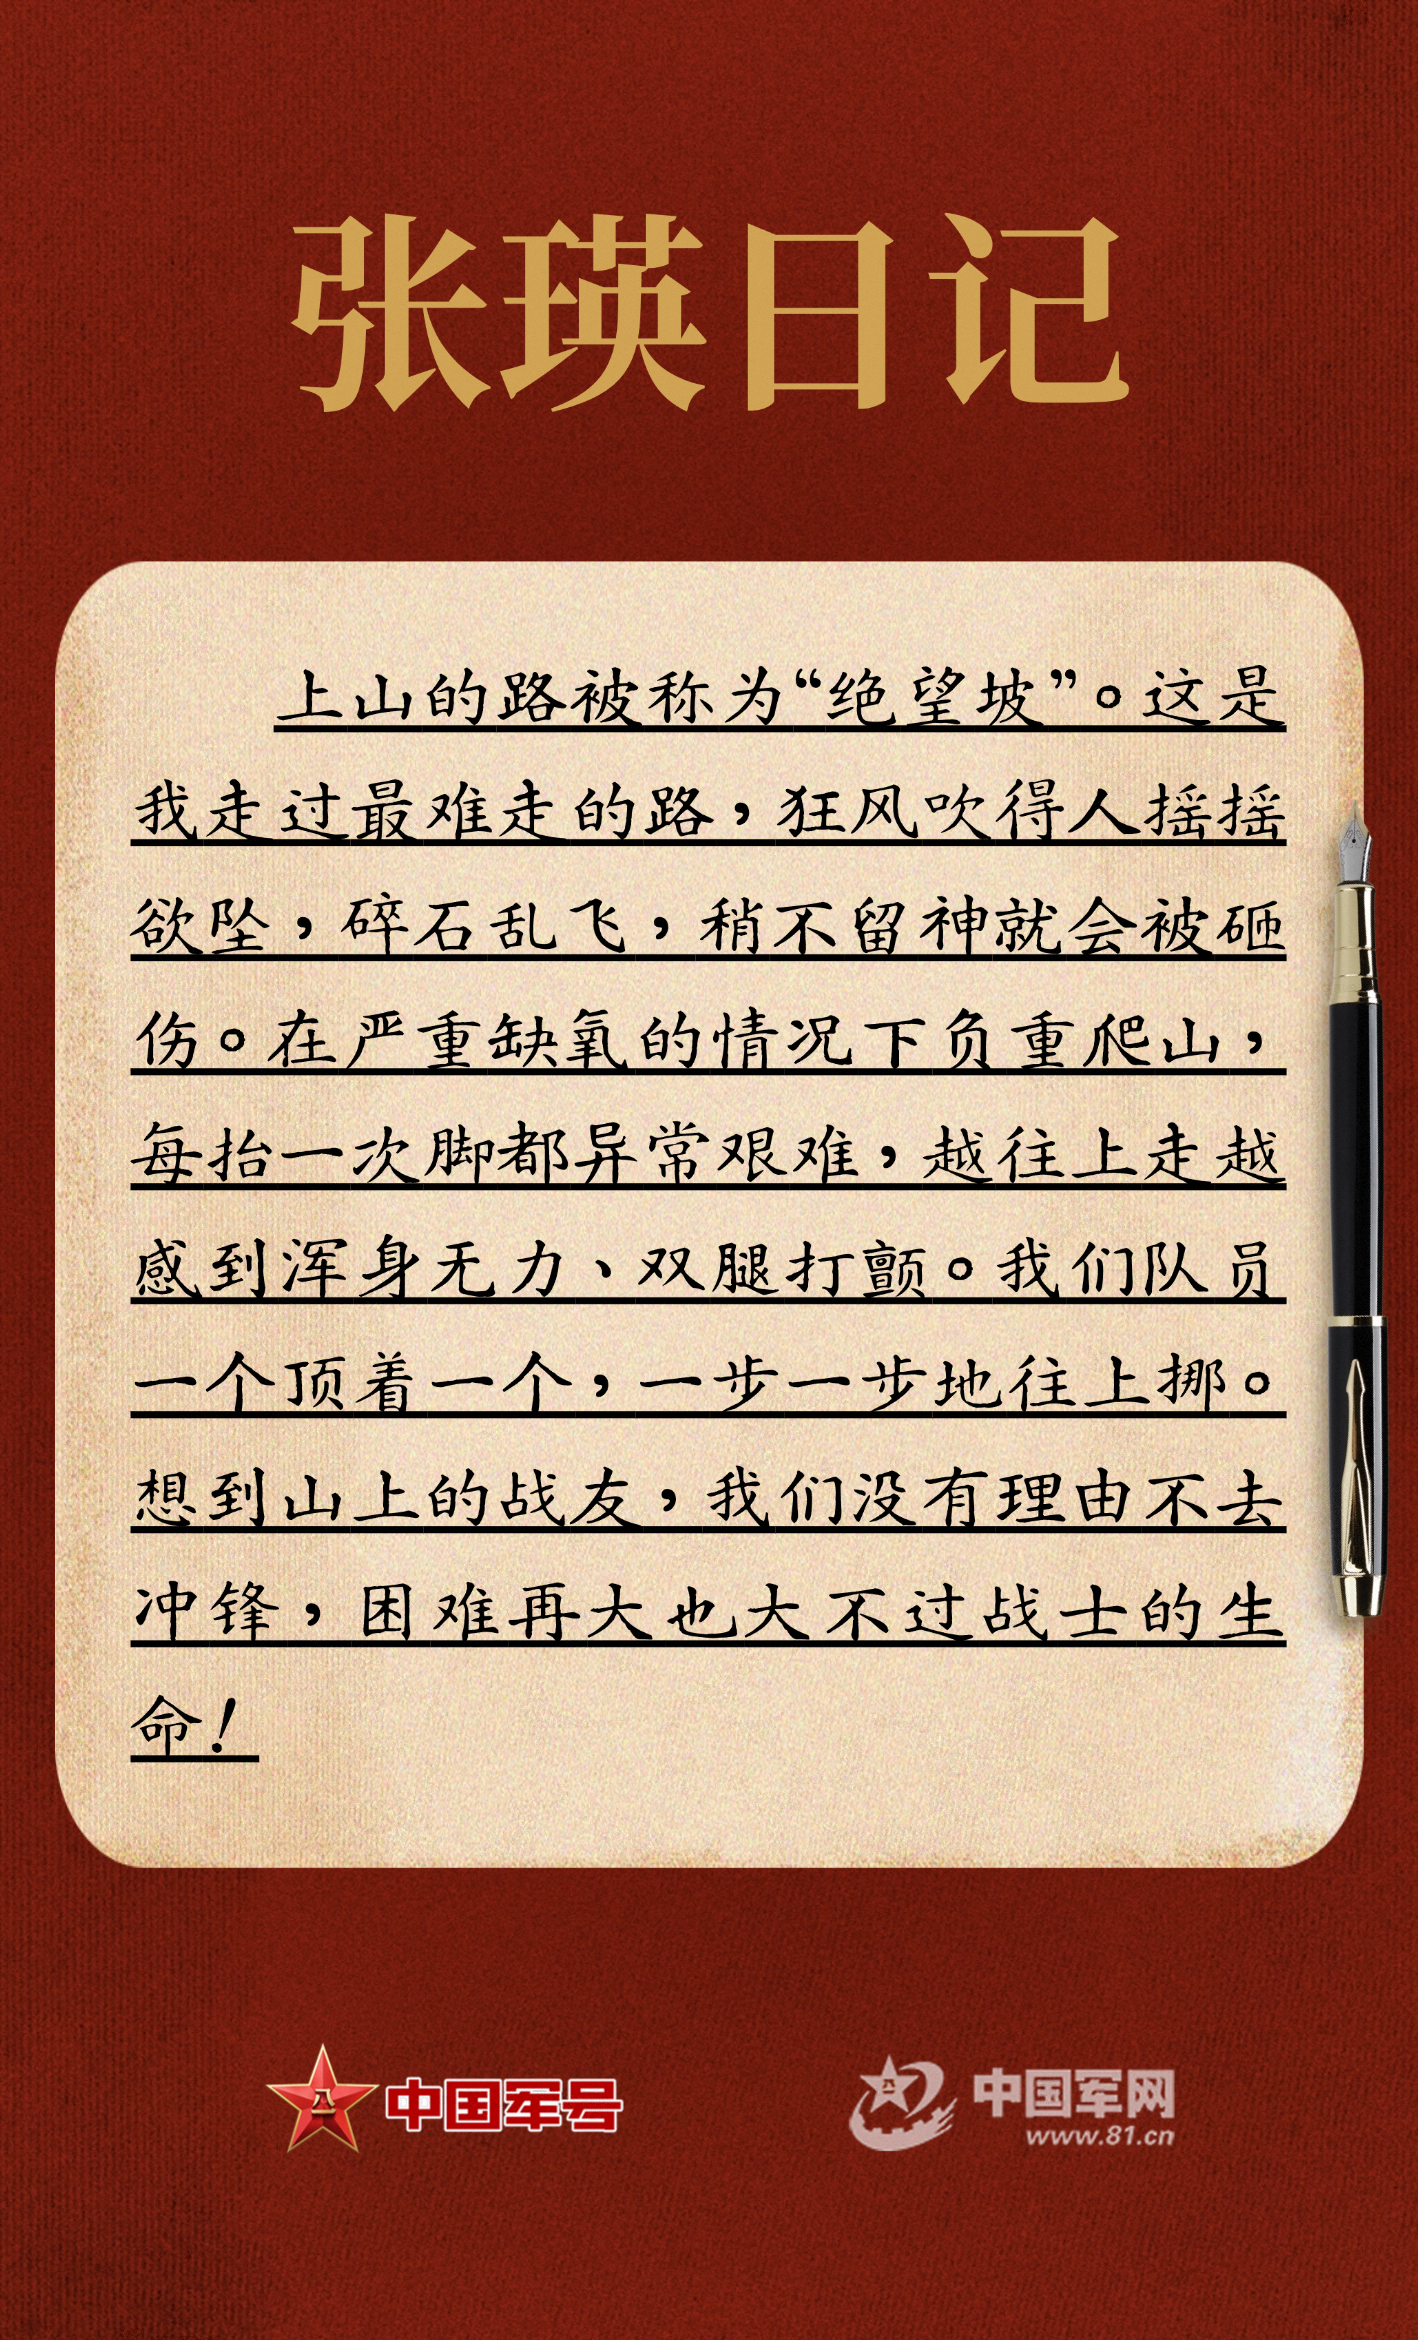 张瑛日记
上山的路被称为“绝望坡”。这是
我走过最难走的路，狂风吹得人摇摇
欲坠，碎石乱飞，稍不留神就会被砸
伤。在严重缺氧的情况下负重爬山，
每抬一次脚都异常艰难，越往上走越
感到浑身无力、双腿打颤。我们队员
一个顶着一个，一步一步地往上挪。
想到山上的战友，我们没有理由不去
冲锋，困难再大也大不过战士的生
命！
中国军号
中国军网
www.81.cn